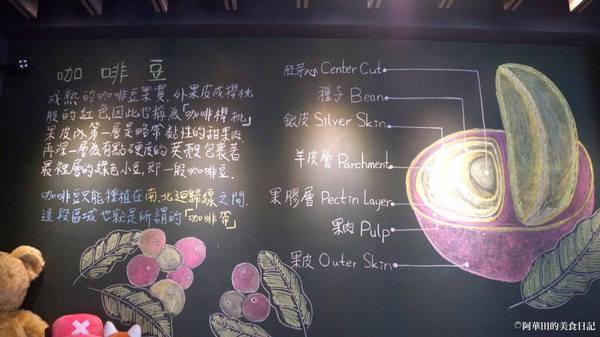 咖啡豆
成熟的咖啡豆果實,外果皮成櫻桃
般的紅色,因此也稱為「咖啡櫻桃」
果皮內第一層是略帶黏性的甜果肉,
再深一層為有點硬度的莢殼包裹著
最裡層的綠色小豆,即一般咖啡豆.
咖啡豆只能種植在南.北迴歸線之間,
這段區域也就是所謂的「咖啡帶」
胚芽 Center Cut
種子 Bean
銀皮 Silver Skin
羊皮層 Parchment
果膠層 Pectin Layer
果肉 Pulp
果皮 Outer Skin
©阿華田的美食日記